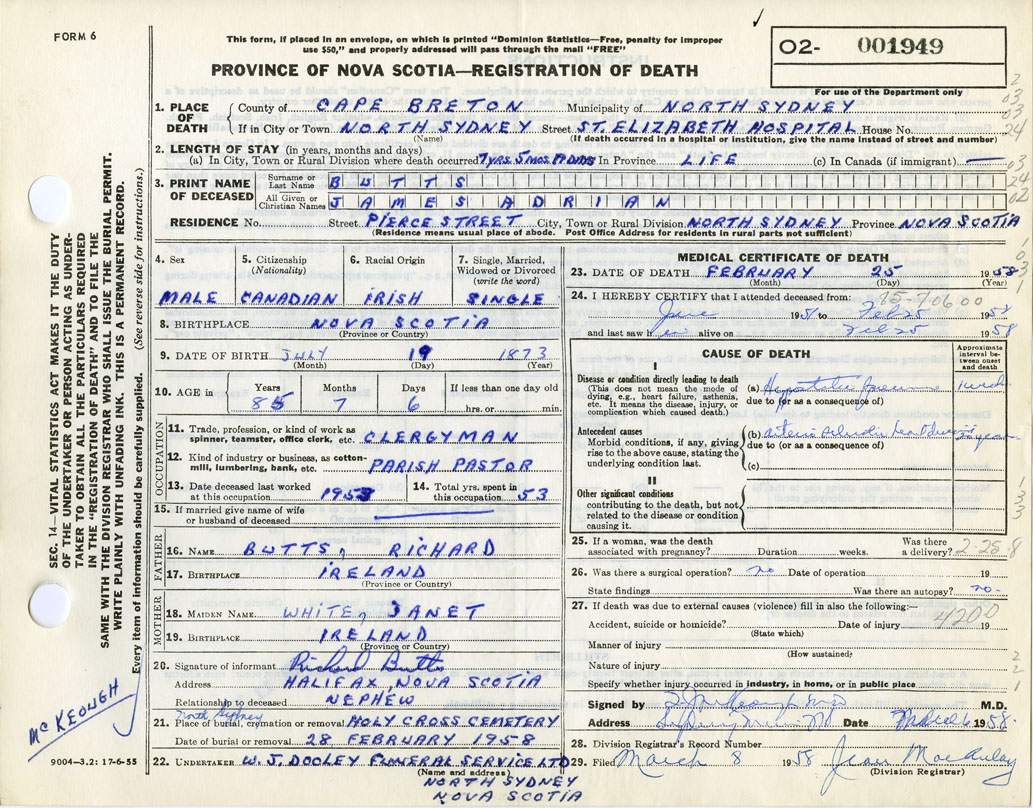 FORM 6
This form, if placed in an envelope, on which is printed "Dominion Statistics—Free, penalty for improper
use $50," and properly addressed will pass through the mail "FREE"
O2- 001949
For use of the Department only
PROVINCE OF NOVA SCOTIA—REGISTRATION OF DEATH
1. PLACE OF DEATH County of CAPE BRETON Municipality of NORTH SYDNEY
If in City or Town NORTH SYDNEY Street ST. ELIZABETH HOSPITAL House No.
(Name) (If death occurred in a hospital or institution, give the name instead of street and number)
2. LENGTH OF STAY (in years, months and days)
(a) In City, Town or Rural Division where death occurred 7 YRS. 5 MOS. In Province LIFE (c) In Canada (if immigrant) —
3. PRINT NAME OF DECEASED
Surname or Last Name BUTTS
All Given or Christian Names JAMES ADRIAN
RESIDENCE No. Street PIERCE STREET City, Town or Rural Division NORTH SYDNEY Province NOVA SCOTIA
(Residence means usual place of abode. Post Office Address for residents in rural parts not sufficient)
4. Sex
MALE
5. Citizenship
(Nationality)
CANADIAN
6. Racial Origin
IRISH
7. Single, Married,
Widowed or Divorced
(write the word)
SINGLE
8. BIRTHPLACE NOVA SCOTIA
(Province or Country)
9. DATE OF BIRTH JULY 19 1873
(Month) (Day) (Year)
10. AGE in Years Months Days If less than one day old
7 6 hrs. or min.
OCCUPATION
11. Trade, profession, or kind of work as
spinner, teamster, office clerk, etc. CLERGYMAN
12. Kind of industry or business, as cotton-
mill, lumbering, bank, etc. PARISH PASTOR
13. Date deceased last worked
at this occupation
14. Total yrs. spent in
this occupation 53
15. If married give name of wife
or husband of deceased
FATHER
16. NAME BUTTS, RICHARD
17. BIRTHPLACE IRELAND
(Province or Country)
MOTHER
18. MAIDEN NAME WHITE, JANET
19. BIRTHPLACE IRELAND
(Province or Country)
20. Signature of informant Richard Butts
Address HALIFAX, NOVA SCOTIA
Relationship to deceased NEPHEW
North Sydney
21. Place of burial, cremation or removal HOLY CROSS CEMETERY
Date of burial or removal 28 FEBRUARY 1958
22. UNDERTAKER W. J. DOOLEY FUNERAL SERVICE LTD
(Name and address)
NORTH SYDNEY
NOVA SCOTIA
MEDICAL CERTIFICATE OF DEATH
23. DATE OF DEATH FEBRUARY 25 1958
(Month) (Day) (Year)
24. I HEREBY CERTIFY that I attended deceased from:
15-70600
June 195 to Feb 25 1958
and last saw h im alive on Feb 25 1958
CAUSE OF DEATH
Approximate
interval be-
tween onset
and death
I
Disease or condition directly leading to death
(This does not mean the mode of
dying, e.g., heart failure, asthenia,
etc. It means the disease, injury, or
complication which caused death.)
(a) Hypostatic Pneumonia 1 week
due to (or as a consequence of)
Antecedent causes
Morbid conditions, if any, giving
rise to the above cause, stating the
underlying condition last.
(b) heart disease years
due to (or as a consequence of)
(c)
II
Other significant conditions
contributing to the death, but not
related to the disease or condition
causing it.
25. If a woman, was the death
associated with pregnancy? Duration weeks. Was there
a delivery? 2-25-8
26. Was there a surgical operation? no Date of operation 19
State findings Was there an autopsy? no.
27. If death was due to external causes (violence) fill in also the following:—
4200
Accident, suicide or homicide? Date of injury 19
(State which)
Manner of injury
(How sustained)
Nature of injury
Specify whether injury occurred in industry, in home, or in public place
Signed by M.D.
Address Date 1958.
28. Division Registrar's Record Number
29. Filed March 8 1958 Jean MacAulay
(Division Registrar)
SEC. 14—VITAL STATISTICS ACT MAKES IT THE DUTY
OF THE UNDERTAKER OR PERSON ACTING AS UNDER-
TAKER TO OBTAIN ALL THE PARTICULARS REQUIRED
IN THE "REGISTRATION OF DEATH" AND TO FILE THE
SAME WITH THE DIVISION REGISTRAR WHO SHALL ISSUE THE BURIAL PERMIT.
WRITE PLAINLY WITH UNFADING INK. THIS IS A PERMANENT RECORD.
Every item of information should be carefully supplied. (See reverse side for instructions.)
MCKEOUGH
9004—3.2: 17-6-55